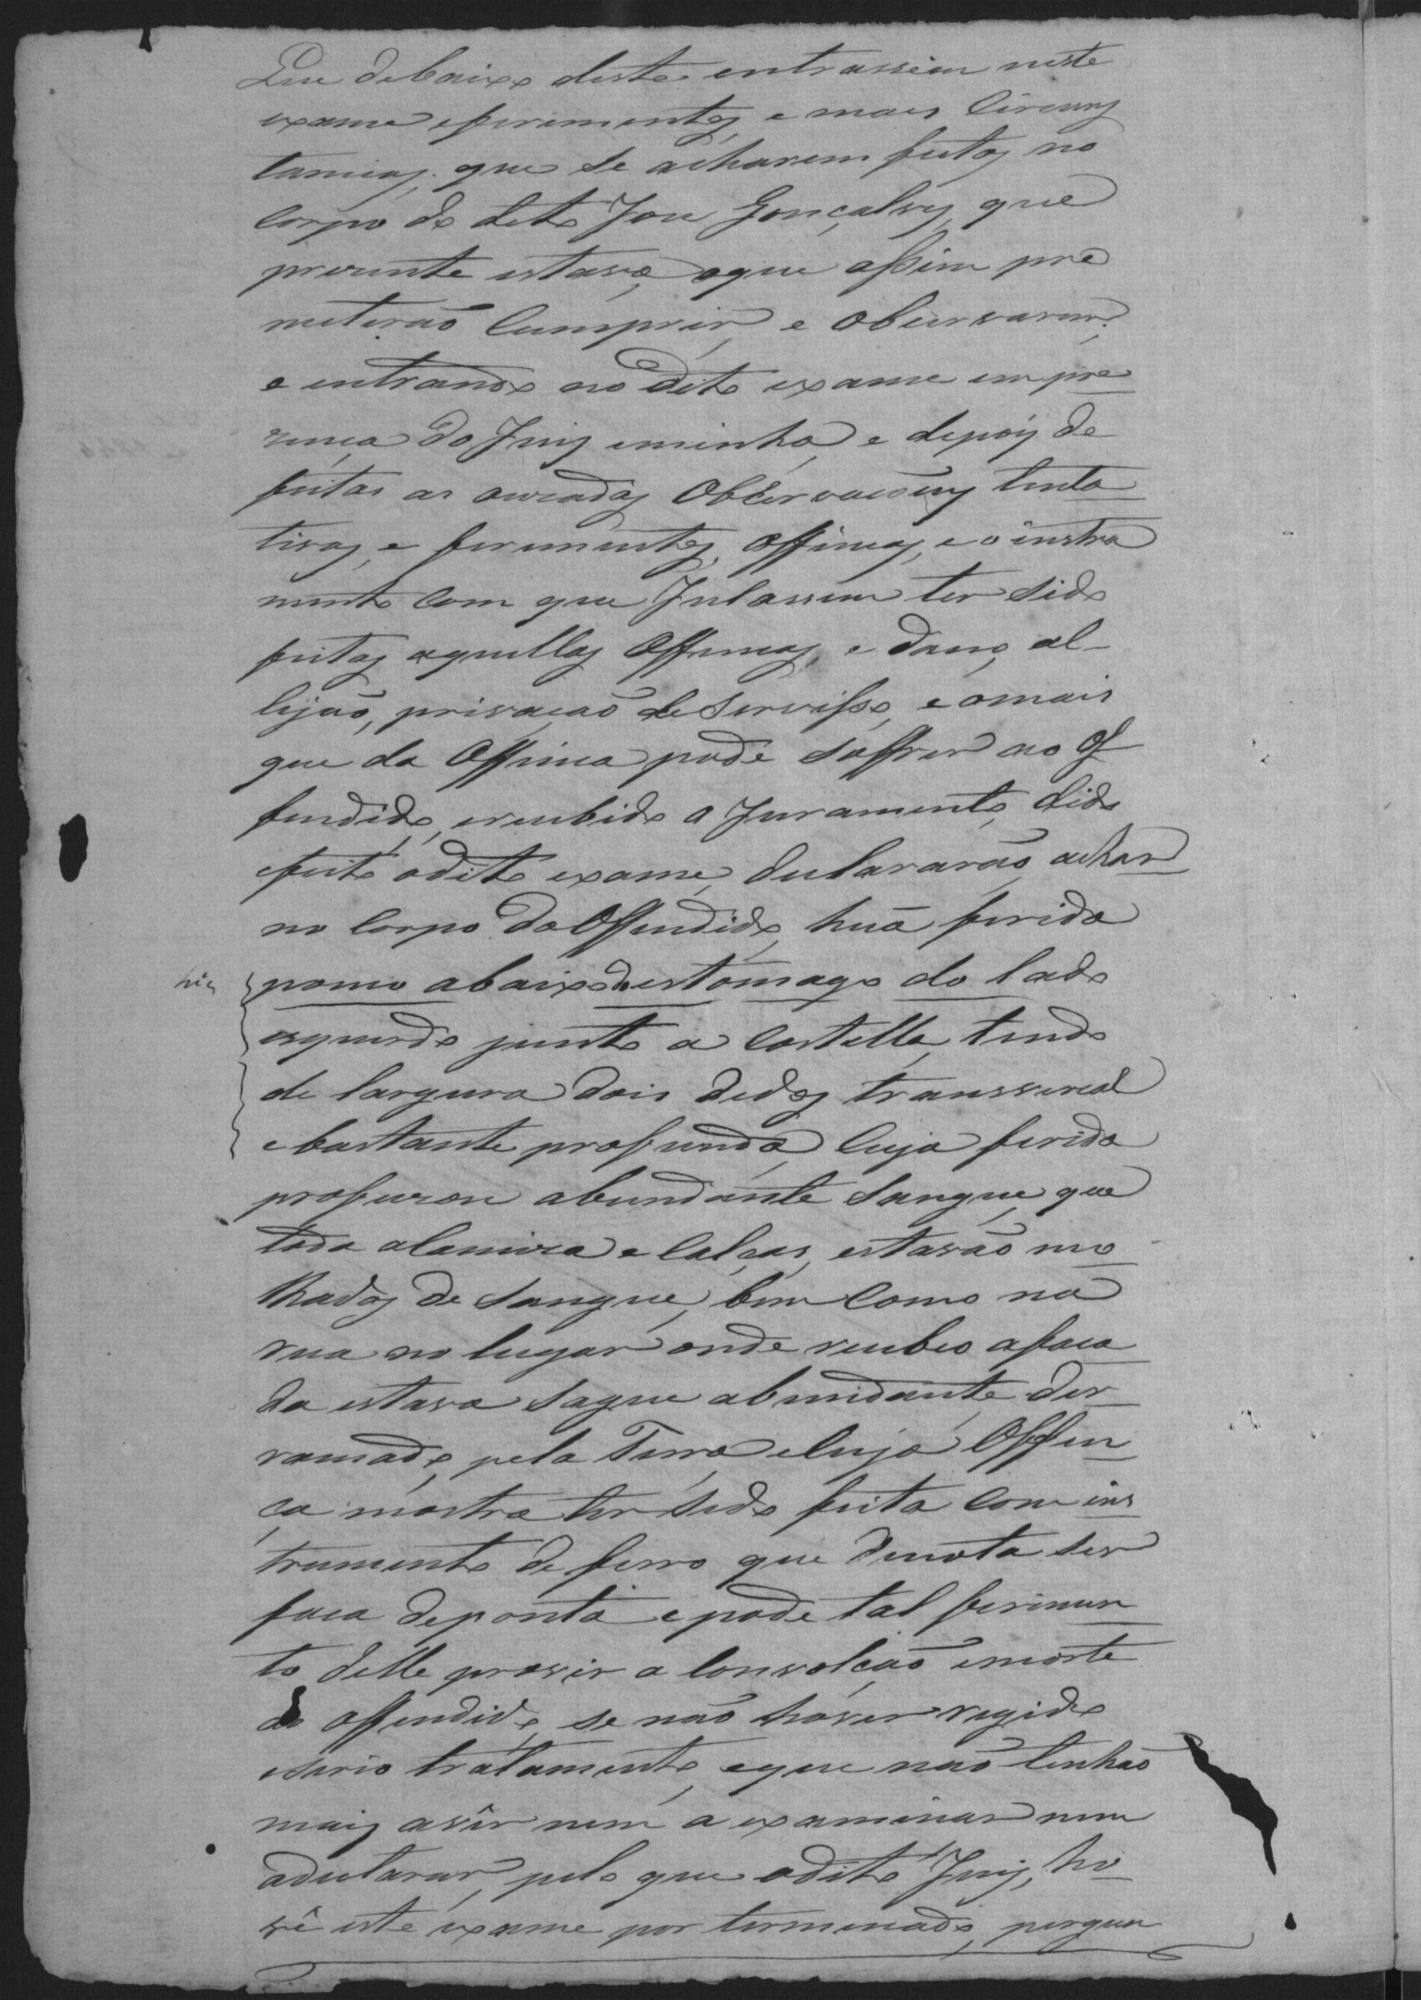 Que debaixo deste entrassem neste
exame eferimentos, e mais Circuns
tancias, que se acharem feitos no
Corpo do dito Joze Gonçalves, que
prezente estava, oque assim pro
meterão Cumprir, e observarem,
e entrando no dito exame em pre
zença do Juiz eminha, e depois de
feitas as buscadas Observaçoens tenta
tivas, e ferimentos, offenças, e o instru
mento com que Julassem ter sido
feitas aquellas Offenças, e dano, al-
leijão, privação de Servisso, e omais
que da Offença pode Soffrer ao of
fendido, erecebido o Juramento, dido
efeito odito exame, declararão achar
no Corpo do Offendido, huã ferida
pouco abaixo do estomago do lado
esquerdo junto a Costella, tendo
de largura dois dedos transversal
e bastante profunda, Cuja ferida
profuzou abundante Sangue, que
toda aCamiza e Calças, estavão mo
lhados de Sangue, bem Como na
rua no lugar onde recebeo afaca
da estava Sague abundante der
ramado, pela Terra eCuja Offen
ça mostra ter Sido feita Com ins
trumento de ferro que denota ser
faca deponta e pode tal ferimen
to delle provir a Convolção emorte
do offendido, se não hover regido
eserio tratamento, eque não tinhão
mais aver nem a examinar nem
adeclarar, pelo que odito Juiz, ho-
vê este exame por terminado, pergun